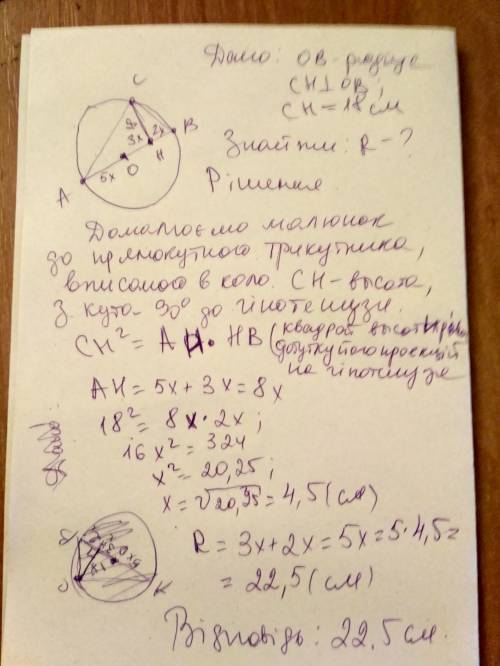 Дано: OB - радіус
CH⊥OB;
CH = 18 см
Знайти: R - ?
Рішення
C
18
3x
2x
B
H
O
5x
A
Домалюємо малюнок
до прямокутного трикутника,
вписаного в коло. CH - высота,
з кута 90° до гіпотенузи.
CH² = AH · HB (квадрат высоты рівно
добутку його проекцій
на гіпотенузу
AH = 5x + 3x = 8x
18² = 8x · 2x;
16x² = 324
x² = 20,25;
x = √20,25 = 4,5 (см)
R = 3x + 2x = 5x = 5·4,5 =
= 22,5 (см)
K
Відповідь: 22,5 см.